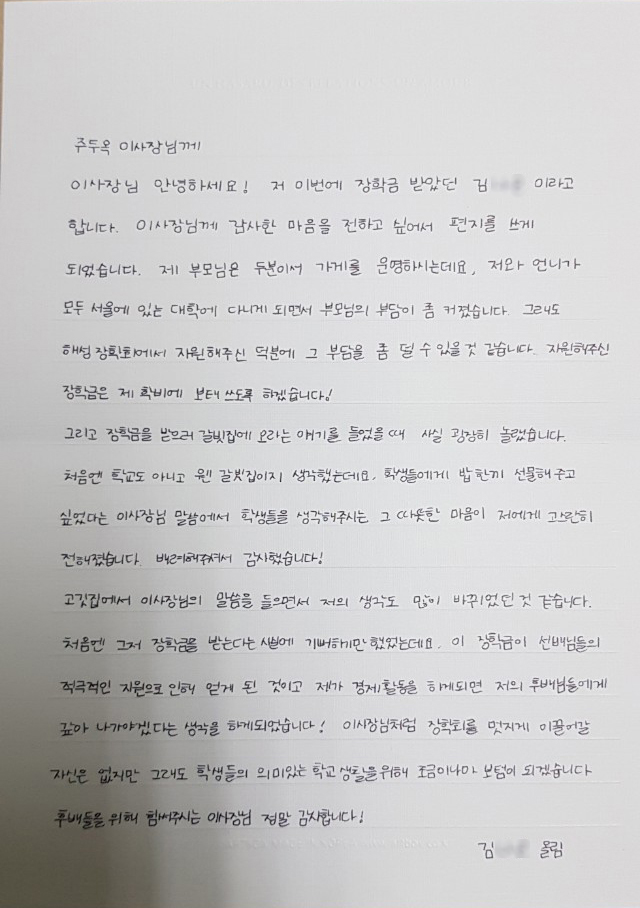 주두옥 이사장님께
이사장님 안녕하세요! 저 이번에 장학금 받았던 김 이라고
합니다. 이사장님께 감사한 마음을 전하고 싶어서 편지를 쓰게
되었습니다. 제 부모님은 두분이서 가게를 운영하시는데요, 저와 언니가
모두 서울에 있는 대학에 다니게 되면서 부모님의 부담이 좀 커졌습니다. 그래도
해성 장학회에서 지원해주신 덕분에 그 부담을 좀 덜 수 있을 것 같습니다. 지원해주신
장학금은 제 학비에 보태 쓰도록 하겠습니다!
그리고 장학금을 받으러 갈빗집에 오라는 얘기를 들었을 때 사실 굉장히 놀랬습니다.
처음엔 학교도 아니고 웬 갈빗집이지 생각했는데요, 학생들에게 밥 한끼 선물해 주고
싶었다는 이사장님 말씀에서 학생들을 생각해주시는 그 따뜻한 마음이 저에게 고스란히
전해졌습니다. 배려해주셔서 감사했습니다!
고깃집에서 이사장님의 말씀을 들으면서 저의 생각도 많이 바뀌었던 것 같습니다.
처음엔 그저 장학금을 받는다는 사실에 기뻐하기만 했었는데요. 이 장학금이 선배님들의
적극적인 지원으로 인해 얻게 된 것이고 제가 경제활동을 하게되면 저의 후배님들에게
갚아 나가야겠다는 생각을 하게되었습니다! 이사장님처럼 장학회를 멋지게 이끌어갈
자신은 없지만 그래도 학생들의 의미있는 학교 생활을 위해 조금이나마 보탬이 되겠습니다
후배들을 위해 힘써주시는 이사장님 정말 감사합니다!
김 올림